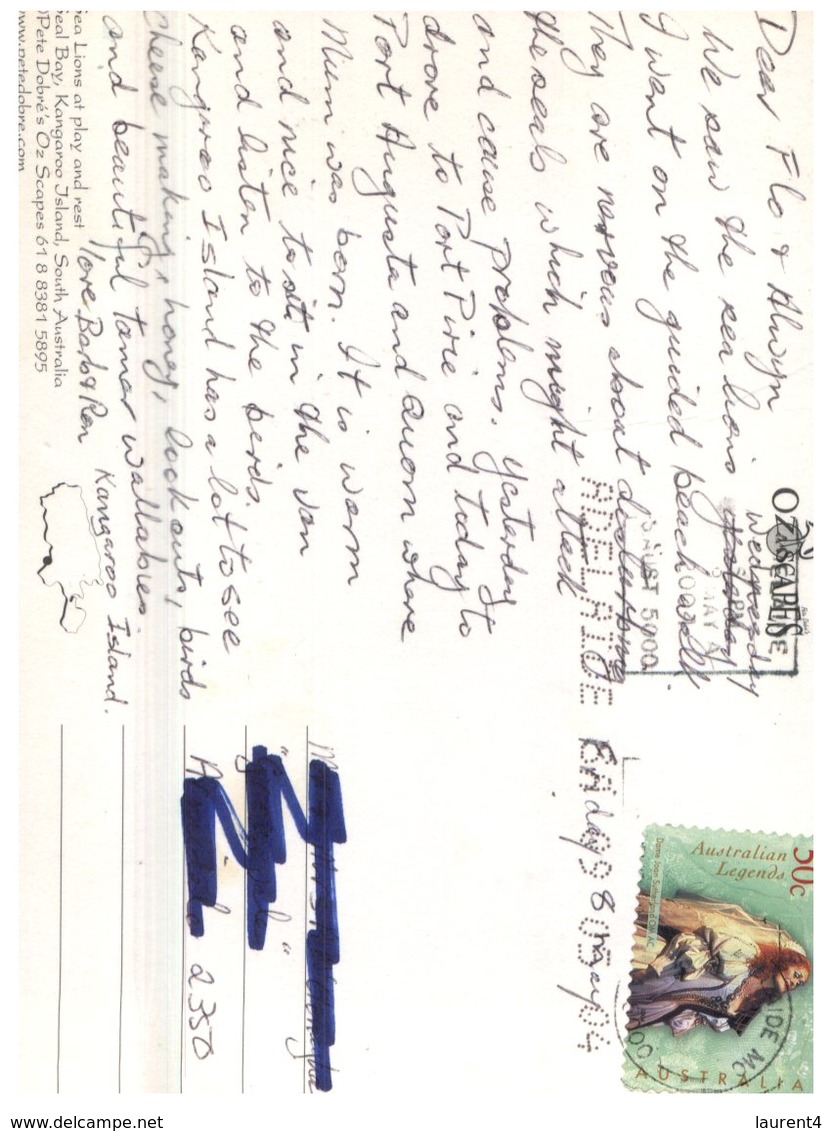 Dear Flo & Alwyn
Wednesday
We saw the sea lions yesterday
I went on the guided beach walk.
They are nervous about
the seals which might attack
and cause problems. Yesterday
drove to Port Pirie and today to
Port Augusta and Quorn where
Mum was born. It is warm
and nice to sit in the van
and listen to the birds.
Kangaroo Island has a lot to see
cheese making, honey, lookouts, birds
and beautiful tamar wallabies.
love Barb & Ren
Kangaroo Island.
Sea Lions at play and rest
Seal Bay, Kangaroo Island, South Australia
©Pete Dobré's Oz Scapes 61 8 8381 5895
www.petedobre.com
OZ SCAPES
ADELAIDE
AUST 5000
Friday 8 may
50c
Australian
Legends
Dame Joan Sutherland OM AC
AUSTRALIA
2350
www.delcampe.net
laurent4